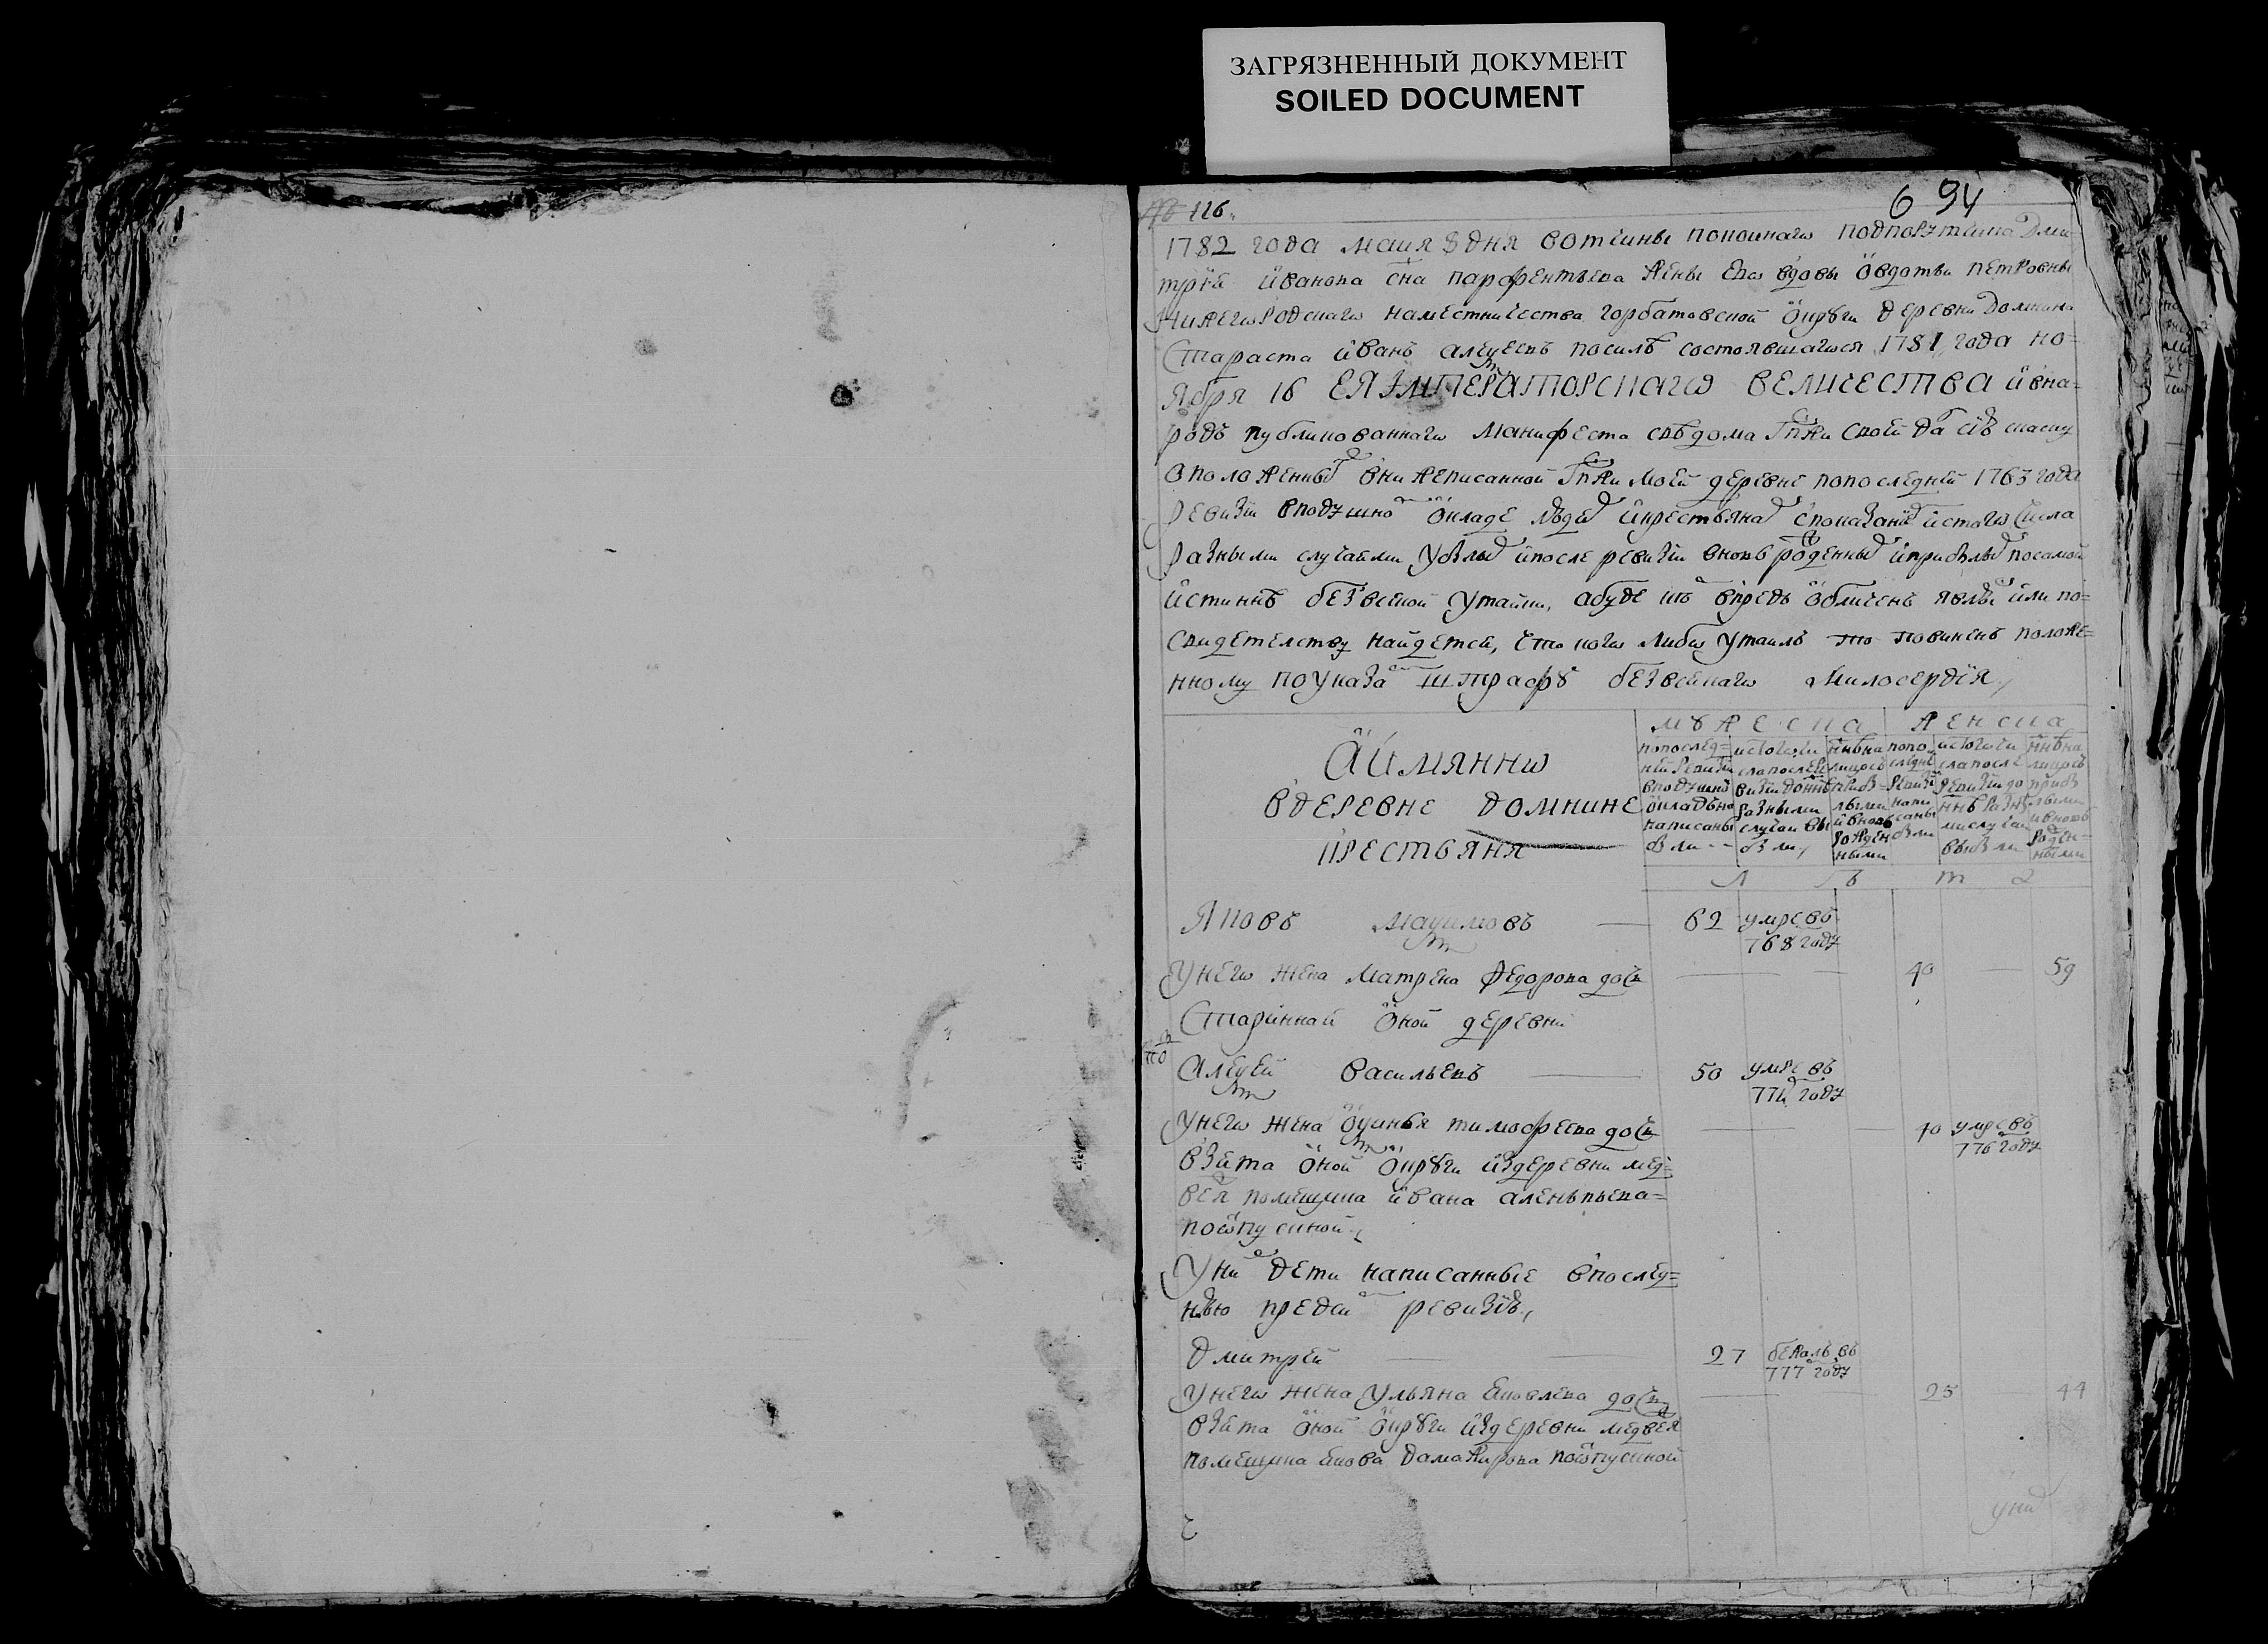 ЗАГРЯЗНЕННЫЙ ДОКУМЕНТ
SOILED DOCUMENT
694
№ 126.
1782 года маия 8 дня вотчины покоинаго подпорутчика Дми
трея иванова сна парфентьева жены ево вдовы овдотьи петровны
Нижегородскаго наместничества горбатовской округи деревни Домнина
Староста иванъ алеѯеевъ посилѣ состоявшагося 1781 года но=
ября 16 ЕЯ ИМПЕРАТОРСКАГО ВЕЛИЧЕСТВА ивна=
родъ публикованнаго манифеста свѣдома гпжи своей далъ скаску
оположенныхъ внижеписанной гпжи моей деревне попоследней 1763 года
ревизіи вподушномъ окладе людех икрестьянах споказаниемъ истого числа
разными случаями убылых ипосле ревизіи вновь рожденных иприбылых посамой
истиннѣ безвсякой утайки, абуде я впредь обличенъ явлюсь или по=
свидетелству найдется, что кого либо утаилъ то повиненъ положе=
нному поуказамъ штрафу безвсякаго милосердія,
Мужеска Женска
Аимянно
вдеревне домнине
крестьяня
попослед=
ней ревизіи
вподушной
окладъ
написаны
были
истого чи
сла после ре
визіи донне
разными
случаи вы
были,
ннѣ на
лицо съ
прибы=
лыми
ивновь
рожден
ными
попо
следней
ревизіи
напи
саны
были
истого чи
сла после
ревизіи до
ннѣ разны
ми случаи
выбыли
ннѣ на
лицо съ
прибы
лыми
ивновь
рожден=
ными
Л ѣ т а
Яковъ Маѯимовъ 62 умре въ
768 году
Унего жена Матрена Федорова дочь 40 59
Старинная оной деревни
Алеѯей васильевъ 50 умре въ
774 году
Унего жена оѯинья тимофеева дочь 40 умре въ
776 году
взята оной округи издеревни мед=
веж помещика ивана аленькьева=
поотпускной,
Уних дети написанные впослед=
нѣю предсимъ ревизію,
Дмитрей 27 бежалъ въ
777 году
Унего жена Ульяна яковлева дочь 25 44
взята оной округи издеревни медвеж
помещика якова Домажирова поотпускной
уних